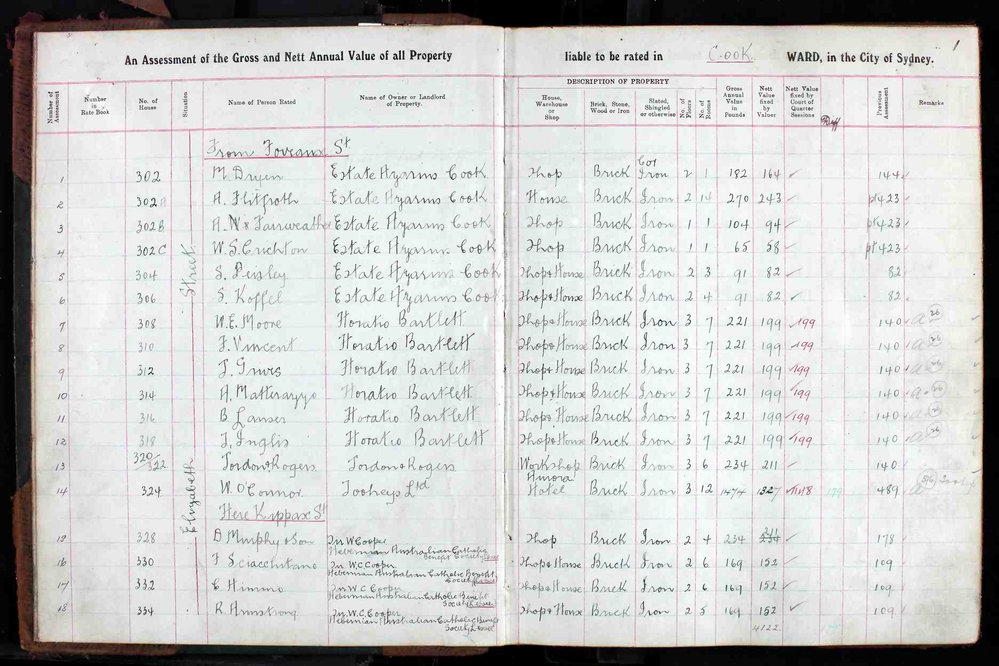 An Assessment of the Gross and Nett Annual Value of all Property liable to be rated in COOK. WARD, in the City of Sydney. 1
DESCRIPTION OF PROPERTY
Number of Assessment Number in Rate Book No. of House Situation Name of Person Rated Name of Owner or Landlord of Property. House, Warehouse or Shop Brick, Stone, Wood or Iron Slated, Shingled or otherwise No. of Floors No. of Rooms Gross Annual Value in Pounds Nett Value fixed by Valuer Nett Value fixed by Court of Quarter Sessions Diff Previous Assessment Remarks
Elizabeth Street
From Foveaux St
1 302 M. Dryen Estate Hyarms Cook Shop Brick Iron 2 1 182 164 ✓ 144
2 302A Estate Hyarms Cook House Brick Iron 2 14 270 243 ✓ pt 423
3 302B Fairweather Estate Hyarms Cook Shop Brick Iron 1 1 104 94 ✓ pt 423
4 302C W. S. Crichton Estate Hyarms Cook Shop Brick Iron 1 1 65 58 ✓ pt 423
5 304 S. Peisley Estate Hyarms Cook Shop & House Brick Iron 2 3 91 82 ✓ 82
6 306 S. Koffel Estate Hyarms Cook Shop & House Brick Iron 2 4 91 82 ✓ 82
7 308 W. E. Moore Horatio Bartlett Shop & House Brick Iron 3 7 221 199 ✓ 199 140 a 26
8 310 F. Vincent Horatio Bartlett Shop & House Brick Iron 3 7 221 199 ✓ 199 140 a 26
9 312 Horatio Bartlett Shop & House Brick Iron 3 7 221 199 ✓ 199 140 a 26
10 314 Horatio Bartlett Shop & House Brick Iron 3 7 221 199 ✓ 199 140 a 26
11 316 B. Lanser Horatio Bartlett Shop & House Brick Iron 3 7 221 199 ✓ 199 140 a 26
12 318 J. Inglis Horatio Bartlett Shop & House Brick Iron 3 7 221 199 ✓ 199 140 a 26
13 320/322 Tordon & Rogers Tordon & Rogers Workshop Brick Iron 3 6 234 211 ✓ 140
14 324 W. O'Connor Tooheys Ltd Aurora Hotel Brick Iron 3 12 1474 1327 129 489
Here Kippax St
15 328 D. Murphy & Son W Cooper Hibernian Australian Catholic Benefit Society Lessee Shop Brick Iron 2 4 234 211 178
16 330 F. Sciacchitano W. C. Cooper Hibernian Australian Catholic Benefit Society Lessee Shop & House Brick Iron 2 6 169 152 ✓ 109
17 332 E. Himmo W. C. Cooper Hibernian Australian Catholic Benefit Society Lessee Shop & House Brick Iron 2 6 169 152 ✓ 109
18 334 R. Armstrong W. C. Cooper Hibernian Australian Catholic Benefit Society Lessee Shop & House Brick Iron 2 5 169 152 ✓ 109
4122